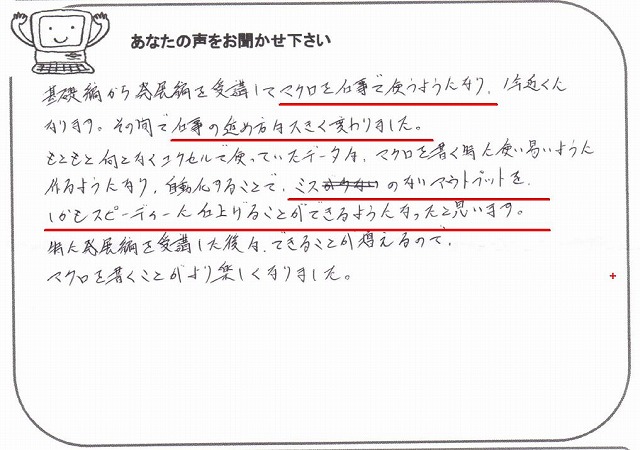 あなたの声をお聞かせ下さい
基礎編から発展編を受講してマクロを仕事で使うようになり、1年近くに
なります。その間で仕事の進め方は大きく変わりました。
もともと何となくエクセルで使っていたデータは、マクロを書く時に使い易いように
作るようになり、自動化することで、ミスのないアウトプットを、
しかもスピーディーに仕上げることができるようになったと思います。
特に発展編を受講した後は、できることが増えるので、
マクロを書くことがより楽しくなりました。